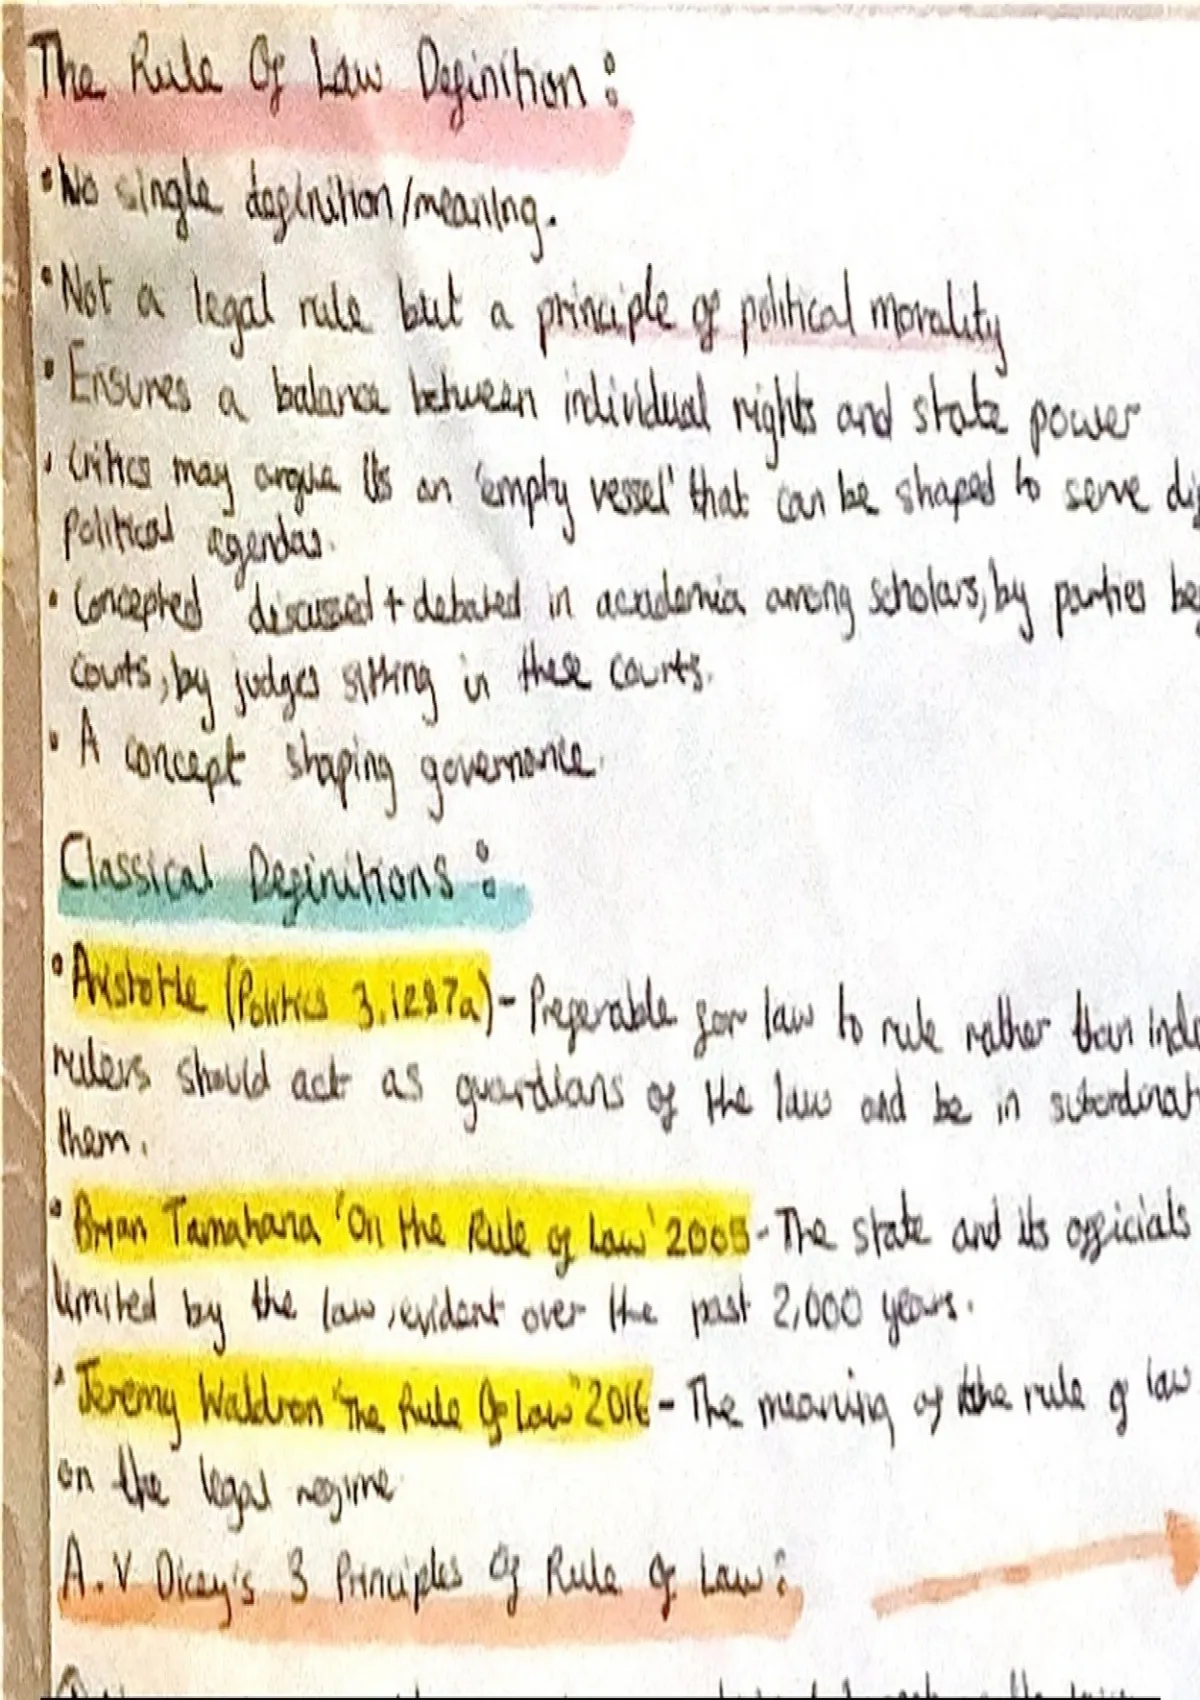 The Rule Of Law Definition :
• No single definition/meaning.
• Not a legal rule but a principle of political morality
• Ensures a balance between individual rights and state power
• Critics may argue its an 'empty vessel' that can be shaped to serve
political agendas.
• Concepted discussed + debated in academia among scholars, by parties
courts, by judges sitting in these courts.
• A concept shaping governance.
Classical Definitions :
• Aristotle (Politics 3.1287a) - Preferable for law to rule rather than
rulers should act as guardians of the law and be in
them.
• Brian Tamahana 'On the Rule of Law' - The state and its officials
limited by the law, evident over the past 2,000 years.
• Jeremy Waldron "The Rule Of Law" 2016 - The meaning of the rule of law
on the legal regime
A.V Dicey's 3 Principles Of Rule Of Law :